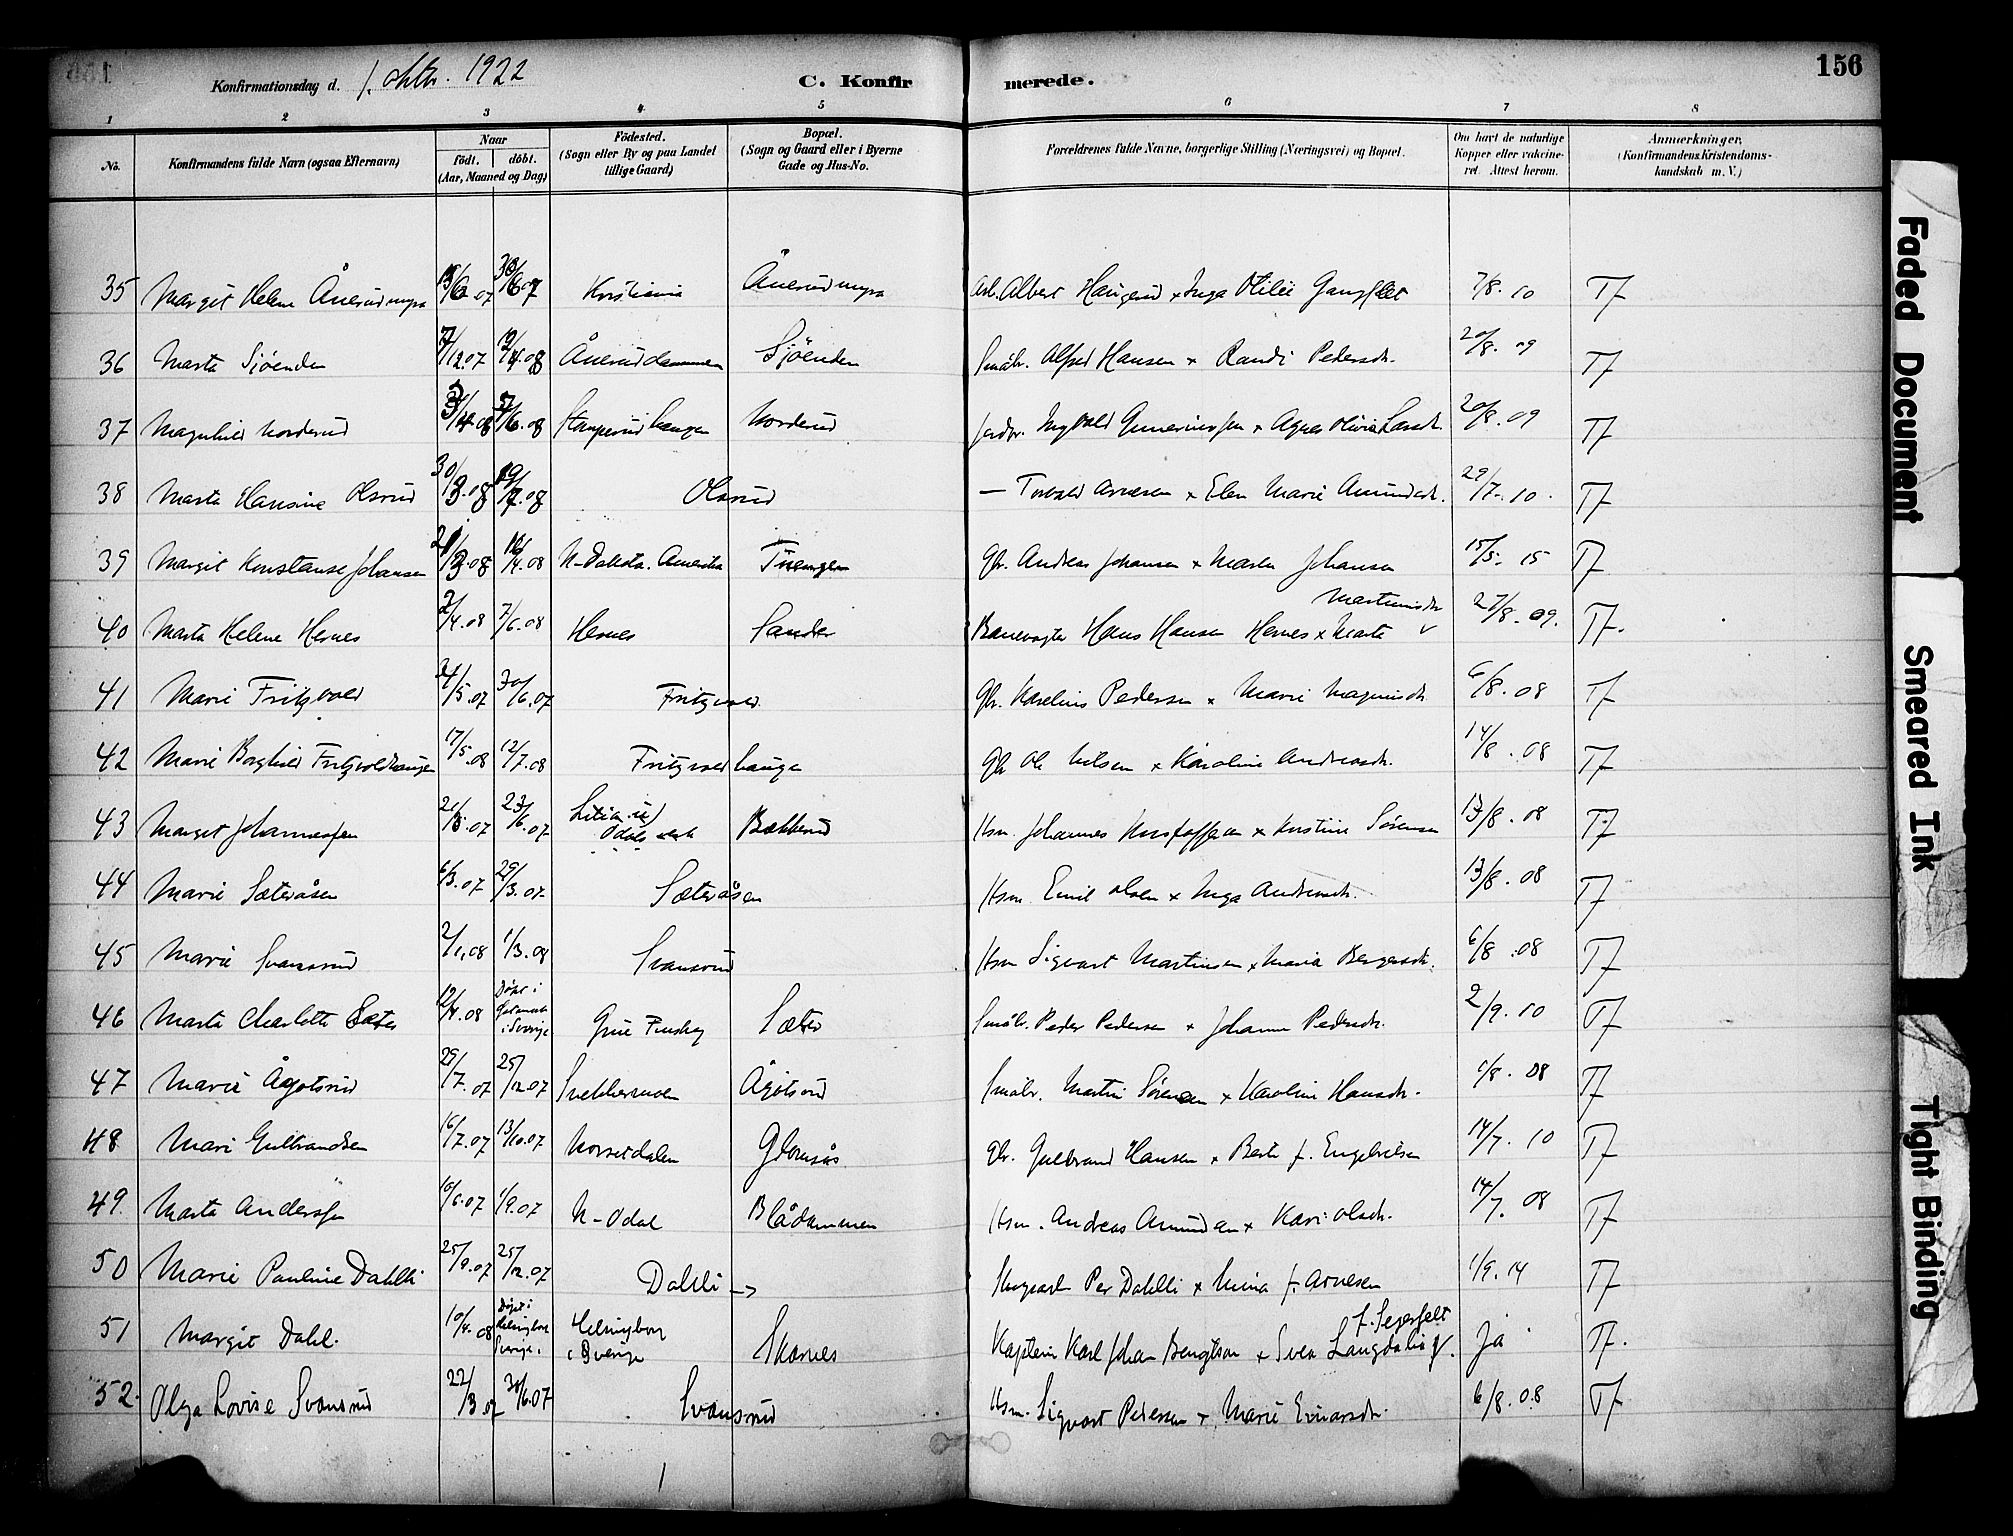 Konfirmationsdag d. 1. Oktbr. 1922
C. Konfirmerede.
156
1 2 3 4 5 6 7 8
No.
Konfirmandens fulde Navn (ogsaa Efternavn)
Naar
födt. döbt.
(Aar, Maaned og Dag)
Födested.
(Sogn eller By og paa Landet
tillige Gaard)
Bopæl.
(Sogn og Gaard eller i Byerne
Gade og Hus-No.
Forældrenes fulde Navne, borgerlige Stilling (Næringsvei) og Bopæl.
Om havt de naturlige
Kopper eller vakcine-
ret. Attest herom.
Anmærkninger,
(Konfirmandens Kristendoms-
kundskab m. V.)
35 Margit Helene Ånerudmyra Kristiania Ånerudmyra Arb. Albert Haugerud x Inga Otilie 7/8. 10 T7
36 Marta Sjøenden 12.07 4.08 Åneruddammen Sjøenden Småbr. Alfred Hansen x Randi Pedersdtr. 20/8. 09 T7
37 Magnhild Norderud 6.08 Stamperudhaugen Norderud Jordbr. Ingvald x Agnes Olivia Larsdtr. 20/8. 09 T7
38 Marta Hansine Olsrud 30/3.08 7.08 Olsrud — Torvald Arnesen x Elen Marie Amundsdtr. 29/7. 10. T7
39 Margit Konstanse Johansen 3.08 4.08 N-Dakota. Amerika Gbr. Andreas Johansen x Marta Johansen 15/5. 15 T7
40 Marta Helene Hernes 2/4.08 7/6.08 Hernes Sander Banevogter Hans Hansen Hernes x Marta Martinsdtr 27/8. 09. T7.
41 Marie Fritzvold 24/5.07 30/6.07 Fritzvold Gbr. Karelius Pedersen x Marie Magnusdtr. 6/8. 08 T7
42 Marie Borghild Fritzvoldhaugen 17/5.08 12/7.08 Fritzvoldhaugen Gbr Ole Nilsen x Karoline Andreasdtr. 14/8. 08 T7
43 Margit Johannessen 21/5.07 23/6.07 Bækkerud Hsm. Johannes Kristoffersen x Kristine Sørensen 13/8. 08 T7
44 Marie Sæteråsen 6/3.07 29/3.07 Sæteråsen Hsm. Emil Olsen x Inga Andreasdtr. 13/8. 08 T7
45 Marie Svansrud 2/1.08 1/3.08 Svansrud Hsm Sigvart Martinsen x Maria Bergersdtr. 6/8. 08 T7
46 Marta Charlotte Sæter 12/4.08 Døbt i i Sverige Grue Finskog Sæter Småbr. Peder Pedersen x Johanne Pedersdtr. 2/9. 10 T7
47 Marie Ågotsrud 29/7.07 25/12.07 Ågotsrud Småbr. Martin Sørensen x Karoline Hansdtr. 6/8. 08 T7
48 Mari Gulbrandsen 16/7.07 13/10.07 Norsetdalen Glomsås Gbr. Gulbrand Hansen x Berte f. Engebretsen 14/7. 10 T7
49 Marta Anderssen 10/6.07 1/9.07 N-Odal Blådammen Hsm. Andreas Amundsen x Kari Olsdtr. 14/7. 08 T7
50 Marie Pauline Dahlli 25/9.07 25/12.07 Dahlli Per Dahlli x Mina f. Arnesen 1/9. 14 T7
51 Margit Dahl. 10/4.08 Døbt i Helsingborg Sverige. Helsingborg i Sverige Skarnes Kaptein Karl Johan Bengtson x Svea f. Segerfelt Ja T7.
52. Olga Lovise Svansrud 22/3.07 30/6.07 Svansrud Hsm. Sigvart Pedersen x Marie Einarsdtr. 6/8. 08 T7
Faded Document
Smeared Ink
Tight Binding